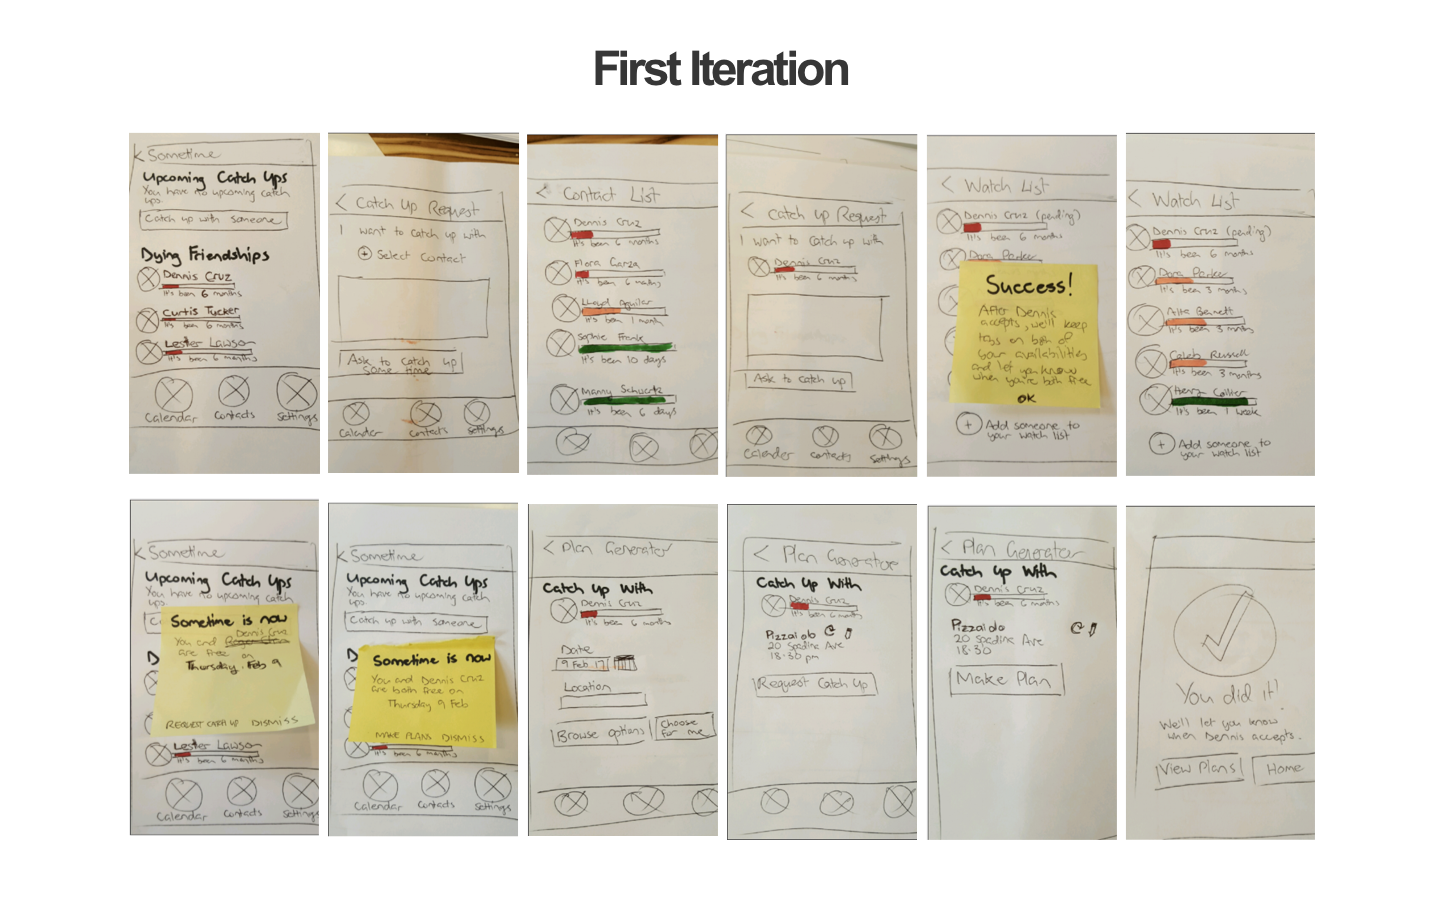 First Iteration
< Sometime
Upcoming Catch Ups
You have no upcoming catch
ups
Catch up with someone
Dying Friendships
Dennis Cruz
It's been 6 months
Curtis Tucker
It's been 6 months
Lester Lawson
It's been 6 months
Calendar Contacts Settings
< Catch Up Request
I want to catch up with
+ Select Contact
Ask to catch up
some time
Calendar Contacts Settings
< Contact List
Dennis Cruz
It's been 6 months
Flora Garza
It's been 6 months
Lloyd Aguilar
It's been 1 month
Sophie Frank
It's been 10 days
Manny Schwartz
It's been 6 days
< Catch Up Request
I want to catch up with
Dennis Cruz
It's been 6 months
Ask to catch up
Calendar Contacts Settings
< Watch List
Dennis Cruz (pending)
It's been 6 months
Dora Parker
Success!
After Dennis
accepts, we'll keep
tabs on both of
your availabilities
and let you know
when you're both free
OK
+ Add someone to
your watch list
< Watch List
Dennis Cruz (pending)
It's been 6 months
Dora Parker
It's been 3 months
Bennett
It's been 3 months
Caleb Russell
It's been 3 months
Henry
It's been 1 week
+ Add someone to
your watch list
< Sometime
Upcoming Catch Ups
You have no upcoming catch
ups
C
Sometime is now
Dennis Cruz
You and
are free on
Thursday, Feb 9
REQUEST CATCH UP DISMISS
D
Lester Lawson
It's been 6 months
Calendar Contacts Settings
< Sometime
Upcoming Catch Ups
You have no upcoming catch
ups
Catch up with someone
Sometime is now
You and Dennis Cruz
are both free on
Thursday 9 Feb
MAKE PLANS DISMISS
D
It's been 6 months
Calendar Contacts Settings
< Plan Generator
Catch Up With
Dennis Cruz
It's been 6 months
Date
9 Feb 17
Location
Browse options
Choose
for me
< Plan Generator
Catch Up With
Dennis Cruz
It's been 6 months
Pizzaiolo
20 Spadina Ave
18:30 pm
Request Catch Up
< Plan Generator
Catch Up With
Dennis Cruz
It's been 6 months
Pizzaiolo
20 Spadina Ave
18:30
Make Plan
You did it!
We'll let you know
when Dennis accepts.
View Plans Home